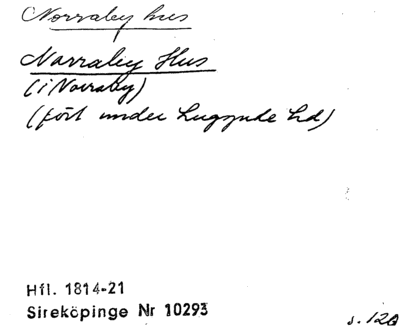 Norraby hus
Narraby Hus
(i Norraby)
(fört under Luggude hd)
Hfl. 1814-21
Sireköpinge Nr 10293
s. 120